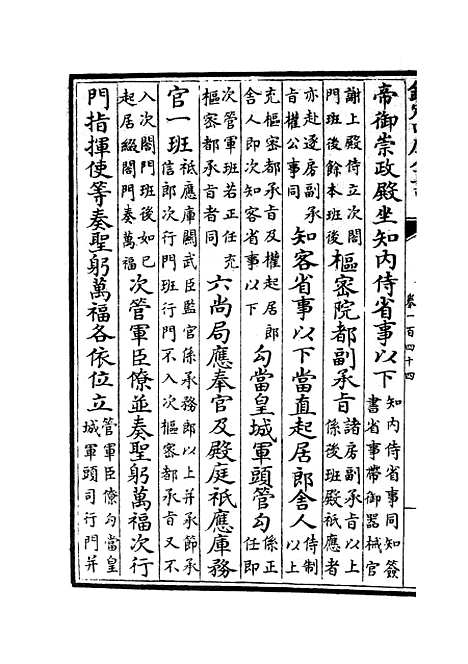 卷一百四十四
帝御崇政殿坐知内侍省事以下知内侍省事同知簽書省事帶御器械官
謝上殿侍立次閤門班後餘本班後樞密院都副承旨諸房副承旨以上係後班殿祗應者
亦赴逐房副承旨權公事同知客省事以下當直起居郎舍人侍制以上
充樞密都承旨及權起居郎舍人即次知客省事以下勾當皇城軍頭管勾係正任即
次管軍班若正任充樞密都承旨者同六尚局應奉官及殿庭祗應庫務
官一班祗應庫闕武臣監官承務郎以上并承節承信郎次行門班行門不入次樞密都承旨又不
入次閤門班後如已起居綴閤門奏萬福次管軍臣僚並奏聖躬萬福次行
門指揮使等奏聖躬萬福各依位立管軍臣僚勾當皇城軍頭司行門并